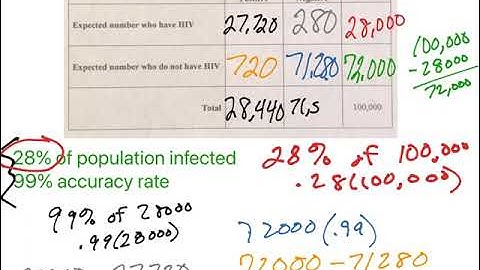 Expected number who have HIV 27,720 280 28,000
Expected number who do not have HIV 720 71,280 72,000
Total 28,440 71,5 100,000
100,000
-28000
72,000
28% of population infected
99% accuracy rate
28% of 100,000
.28(100,000)
99% of 28000
.99(28000)
72000(.99)
72000-71280